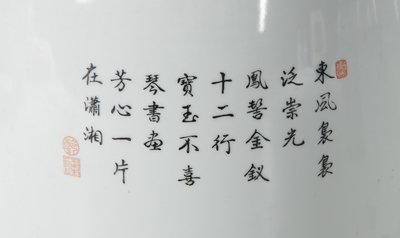 東風裊裊
泛崇光
鳳髻金釵
十二行
寶玉不喜
琴書畫
芳心一片
在瀟湘